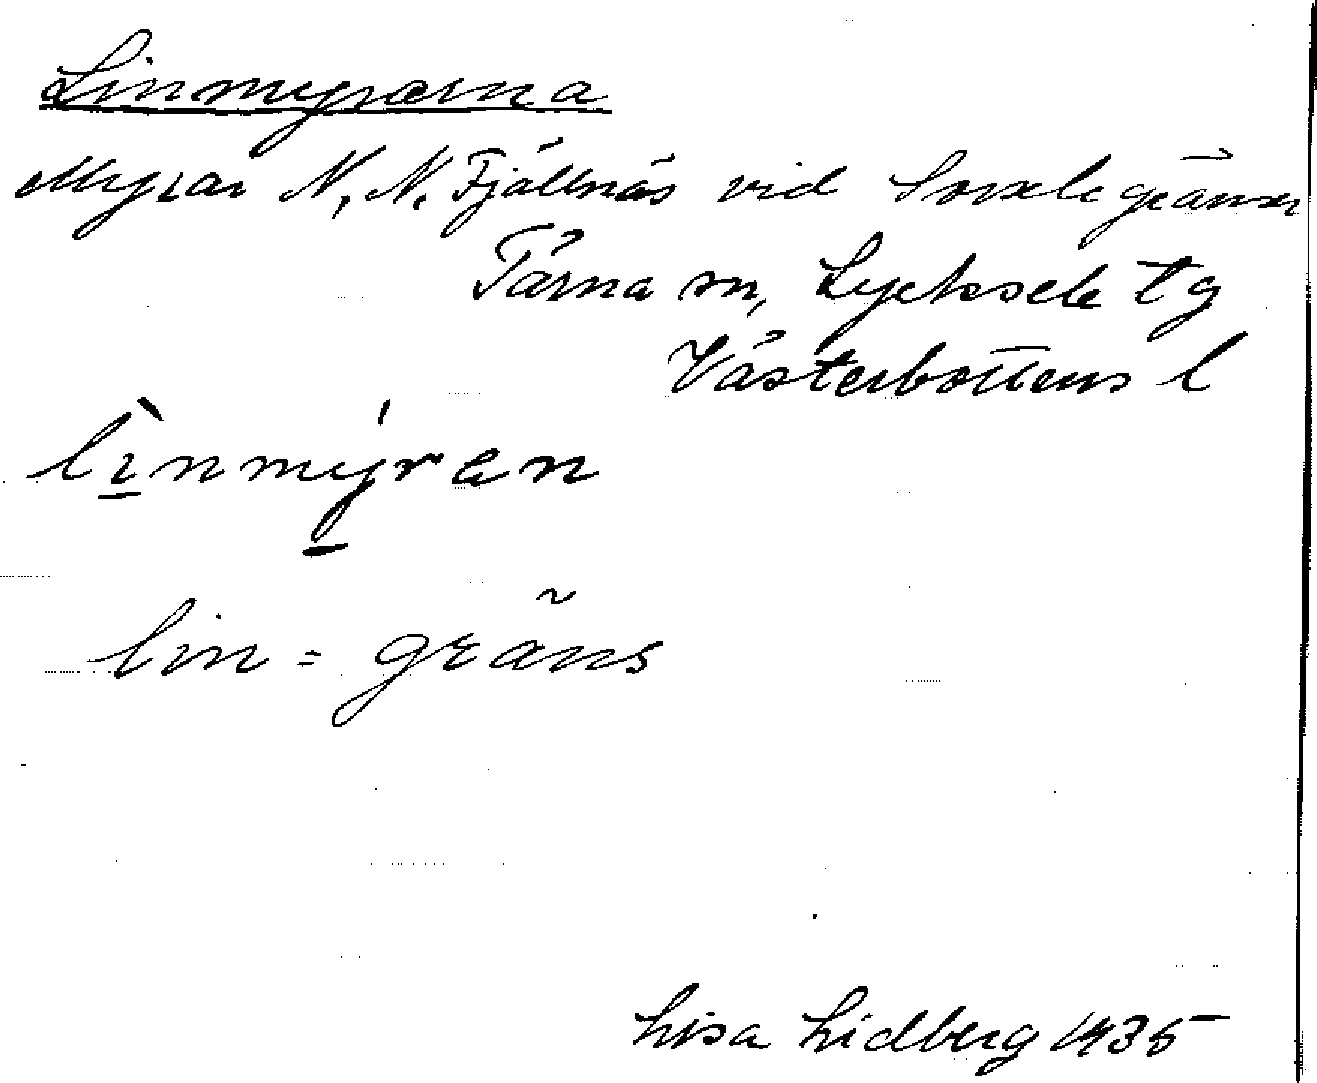 Linmyrarna
Myrar N, N. Fjällnäs vid Sorsele gränsen
Tärna sn, Lycksele tg
Västerbottens l
lìnmýran
lin = gräns
Lisa Lidberg 1935